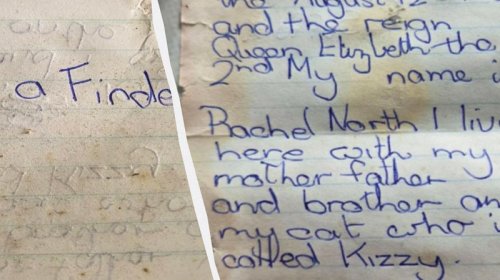 a Finde
and the reign
Queen Elizbeth the
2nd My name i
Rachel North I liv
here with my
mother father
and brother an
my cat who i
called Kizzy.